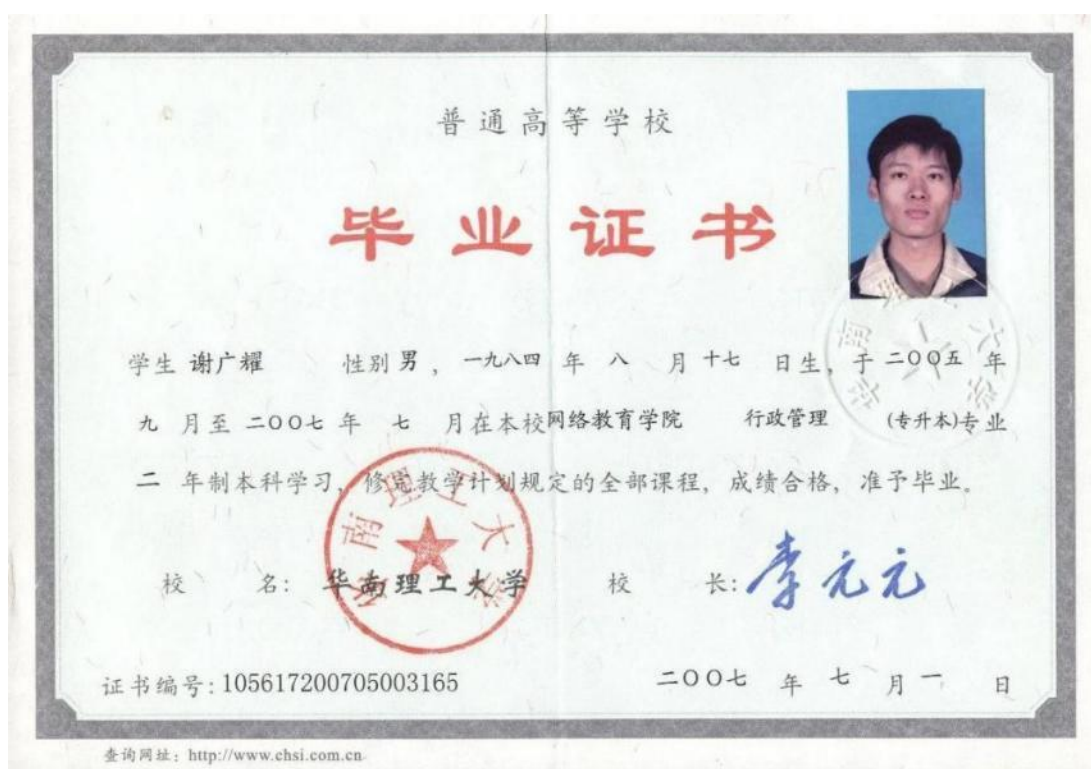 普通高等学校
毕业证书
学生 谢广耀 性别 男 ，一九八四 年 八 月 十七 日生，于 二〇〇五 年
九 月至 二〇〇七 年 七 月在本校网络教育学院 行政管理 (专升本)专业
二 年制本科学习，修完教学计划规定的全部课程，成绩合格，准予毕业。
华南理工大学
校 名：华南理工大学 校 长：李元元
证书编号：105617200705003165 二〇〇七 年 七 月 一 日
查询网址：http://www.chsi.com.cn